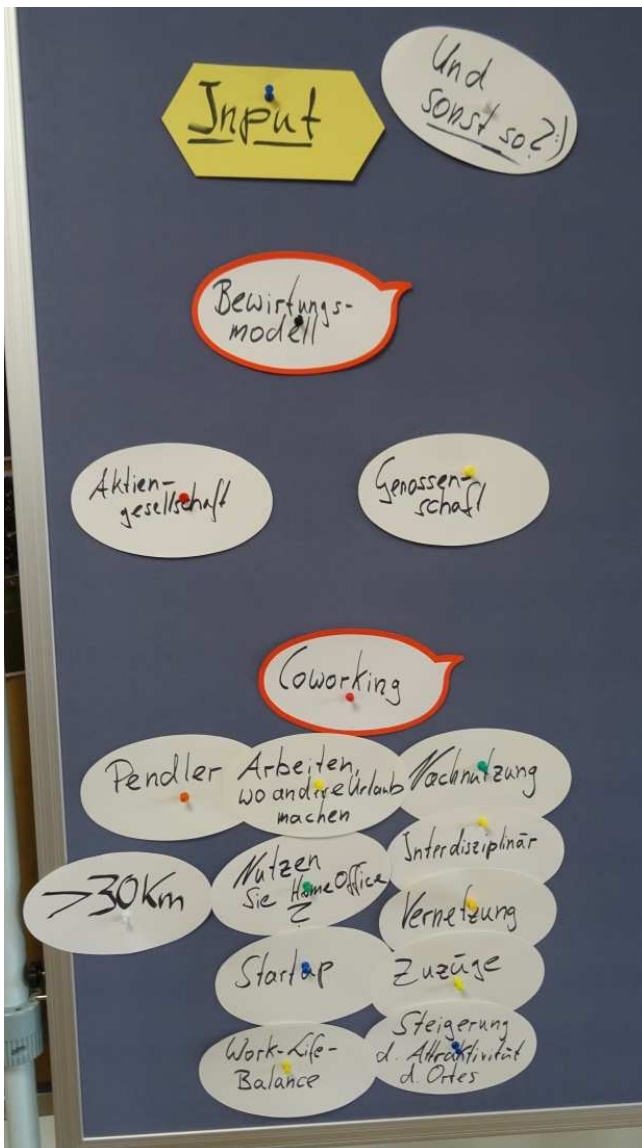 Input
Und
sonst so? :)
Bewirtungs-
modell
Aktien-
gesellschaft
Genossen-
schaft
Coworking
Pendler
Arbeiten,
wo andere Urlaub
machen
Nachnutzung
>30Km
Nutzen
Sie HomeOffice
?
Interdisziplinär
Vernetzung
Startup
Zuzüge
Work-Life-
Balance
Steigerung
d. Attraktivität
d. Ortes